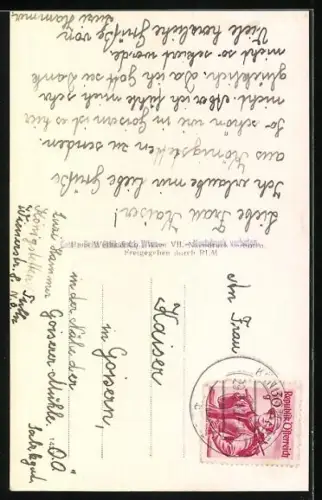 Liebe Frau Kaiser!
Ich erlaube mir liebe Grüße
aus Königstetten zu senden.
So schön wie in Goisern ist es hier
nicht. Aber ich fühle mich sehr
glücklich, da ich Gott sei Dank
nicht so sekiert werde.
Viele herzliche Grüße von
Luzi Hammer
Wien VII.
Freigegeben durch RLM
An Frau
Kaiser
in Goisern,
in der Nähe der
Goiserer-Mühle. O.Ö
Luzi Hammer
Königstetten
Republik Österreich